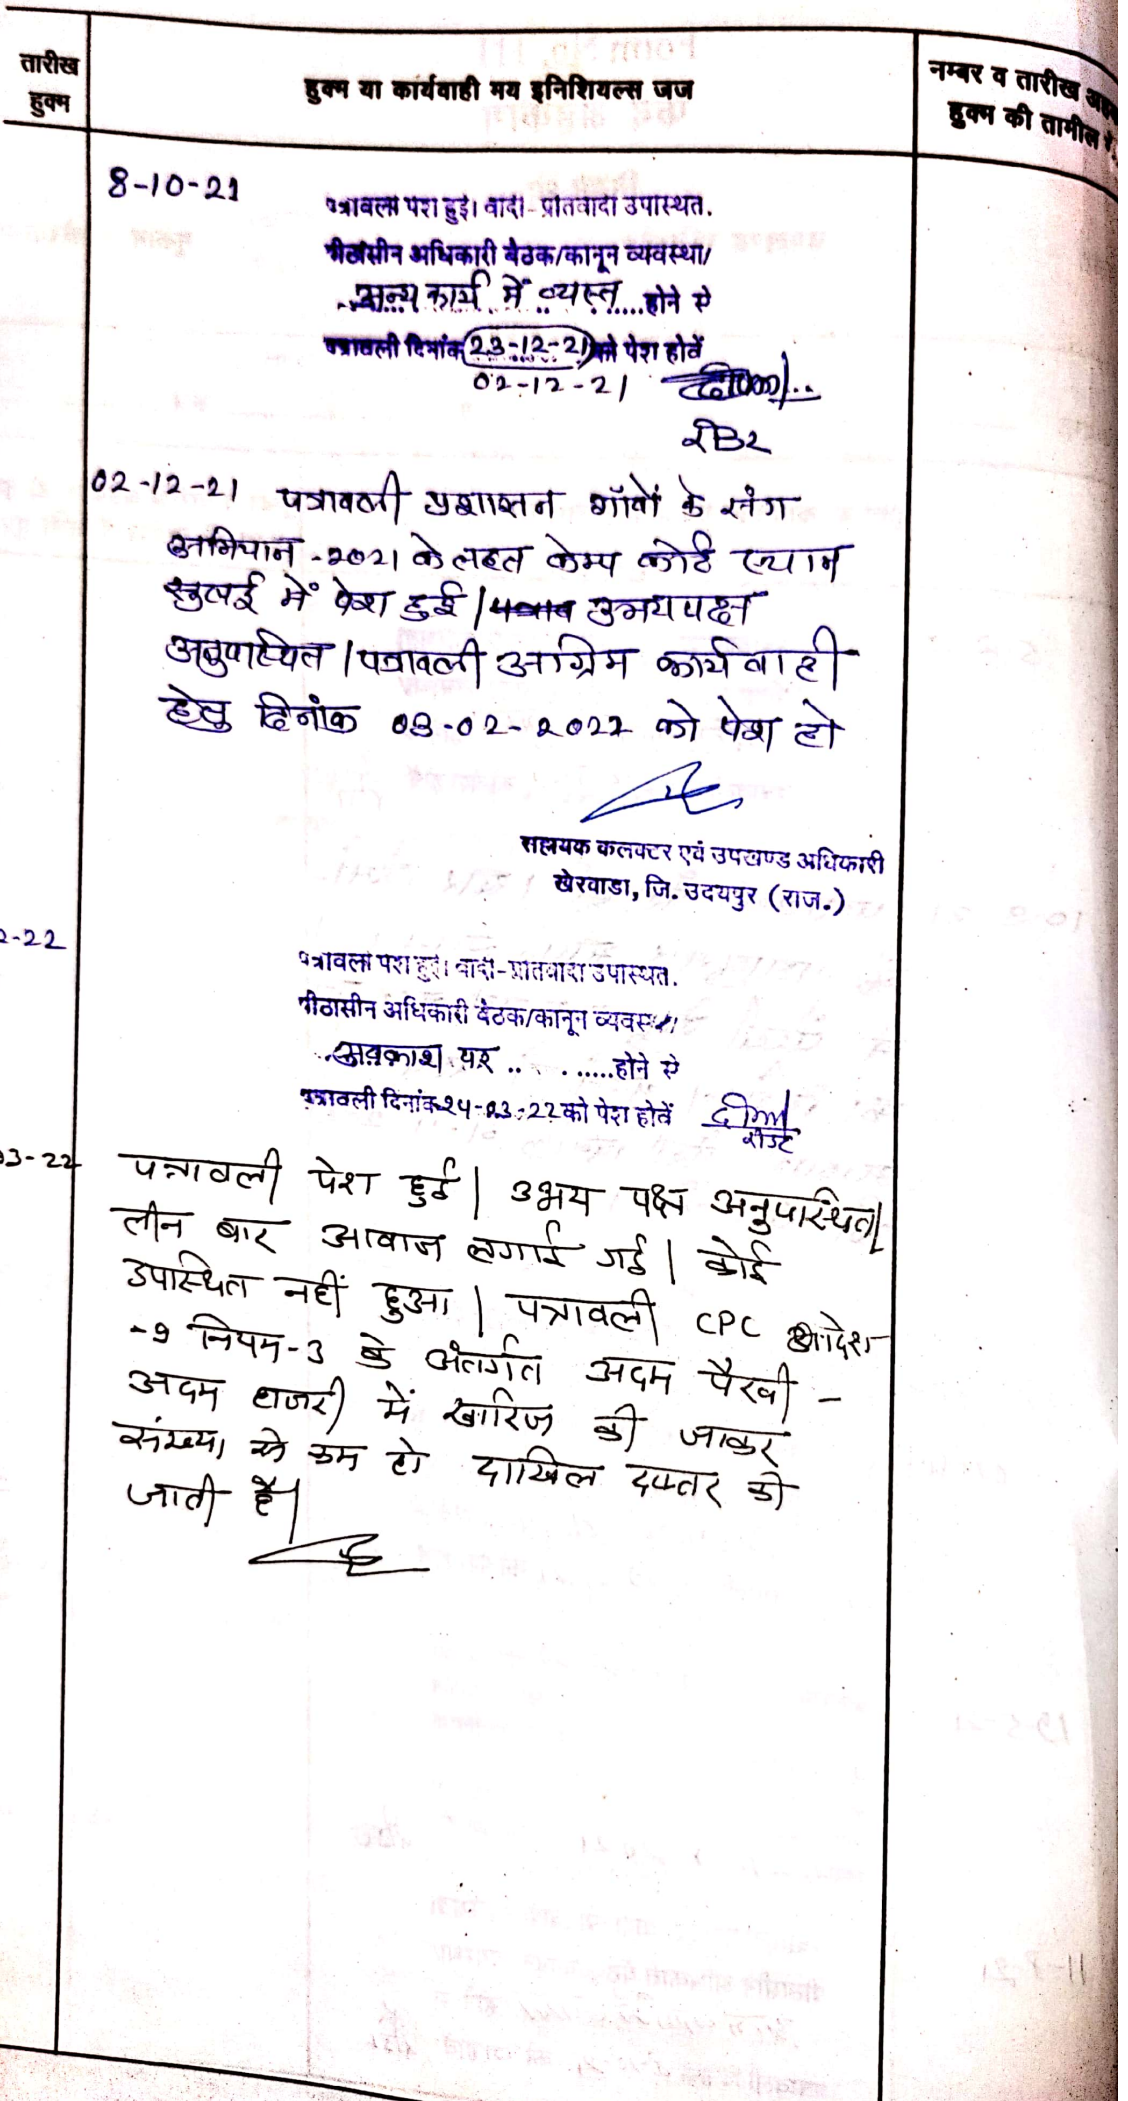 तारीख
हुक्म
हुक्म या कार्यवाही मय इनिशियल्स जज
नम्बर व तारीख
हुक्म की तामील
8-10-21
पत्रावली पेश हुई। वादी-प्रतिवादी उपस्थित.
पीठासीन अधिकारी बैठक/कानून व्यवस्था/
..अन्य कार्य में व्यस्त....होने से
पत्रावली दिनांक 23-12-21 को पेश होवें
02-12-21
02-12-21 पत्रावली प्रशासन गॉवों के संग
अभियान-2021 के तहत केम्प कोर्ट स्थान
में पेश हुई। उभयपक्ष
अनुपस्थित। पत्रावली अग्रिम कार्यवाही
हेतु दिनांक 03-02-2022 को पेश हो
सहायक कलक्टर एवं उपखण्ड अधिकारी
खेरवाडा, जि. उदयपुर (राज.)
2-22
पत्रावली पेश हुई। वादी-प्रतिवादी उपस्थित.
पीठासीन अधिकारी बैठक/कानून व्यवस्था/
..अवकाश पर .. . ......होने से
पत्रावली दिनांक 24-03-22 को पेश होवें
03-22
पत्रावली पेश हुई। उभय पक्ष अनुपस्थित।
तीन बार आवाज लगाई गई। कोई
उपस्थित नहीं हुआ। पत्रावली CPC आदेश
-9 नियम-3 के अंतर्गत अदम पैरवी -
अदम हाजरी में खारिज की जाकर
संख्या से कम हो दाखिल दफ्तर की
जाती है।